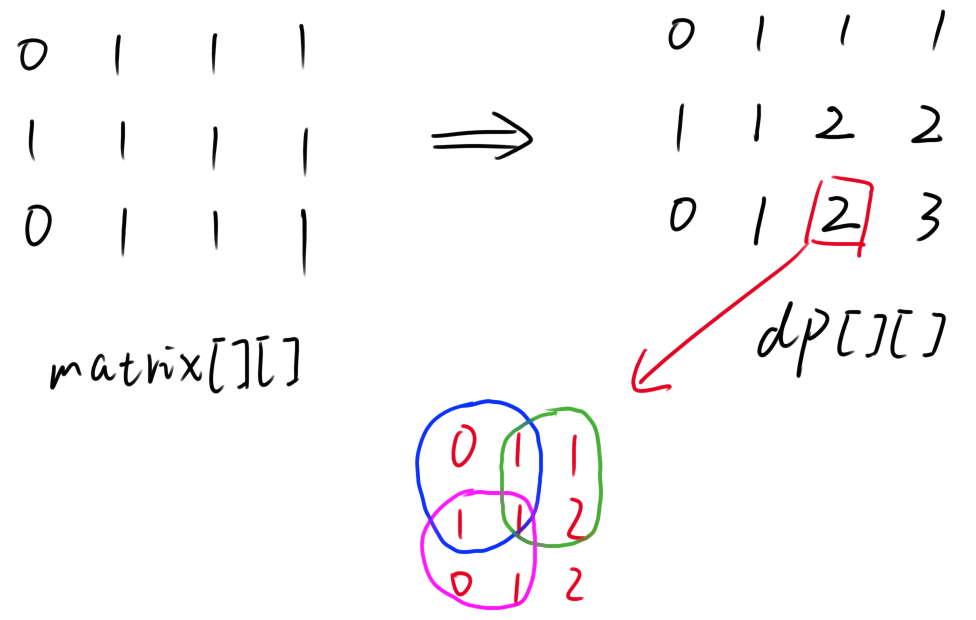 0 1 1 1
1 1 1 1
0 1 1 1
matrix[][]
⇒
0 1 1 1
1 1 2 2
0 1 2 3
dp[][]
0 1 1
1 1 2
0 1 2